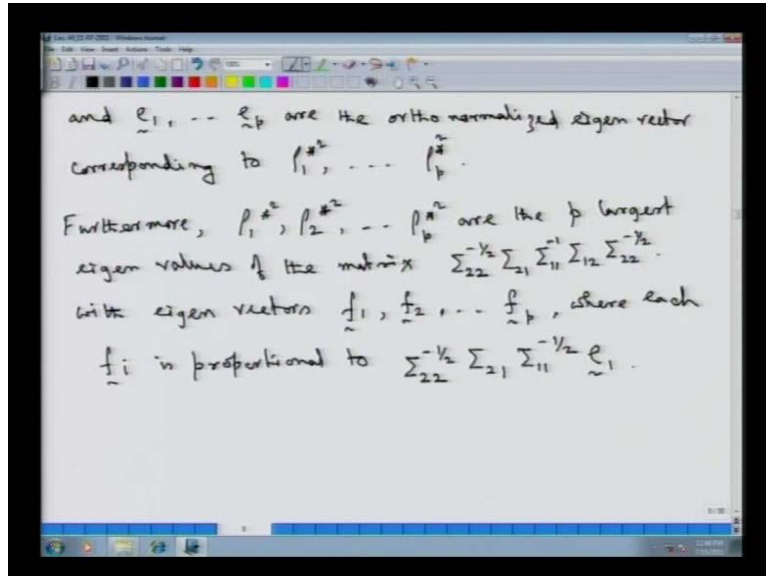 and ḛ₁, -- ḛₚ are the orthonormalized eigen vector
corresponding to ρ₁*², .... ρₚ*².
Furthermore, ρ₁*², ρ₂*², -- ρₚ*² are the p largest
eigen values of the matrix Σ₂₂^{-1/2} Σ₂₁ Σ₁₁^{-1} Σ₁₂ Σ₂₂^{-1/2}.
with eigen vectors f̰₁, f̰₂, .-- f̰ₚ, where each
f̰ᵢ is proportional to Σ₂₂^{-1/2} Σ₂₁ Σ₁₁^{-1/2} ḛ₁.